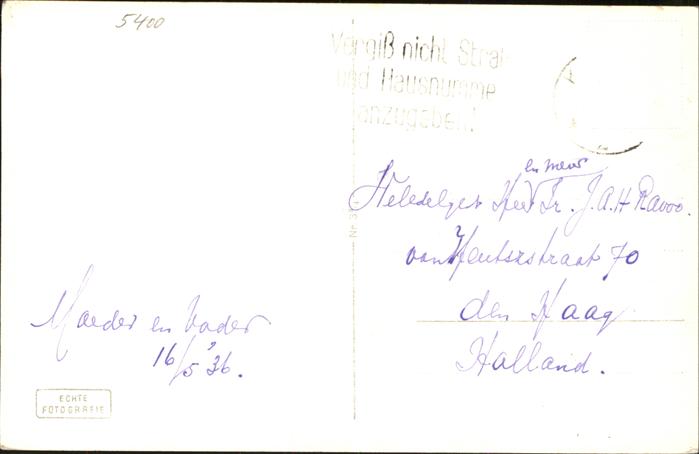 5400
Vergiß nicht Straß
und Hausnumme
anzugeben!
en Mevr
Heer Ir. J.A.H Ravoo.
van Heutszstraat 70
den Haag
Holland.
Nr 3
Moeder en Vader
16/5 '36.
ECHTE
FOTOGRAFIE